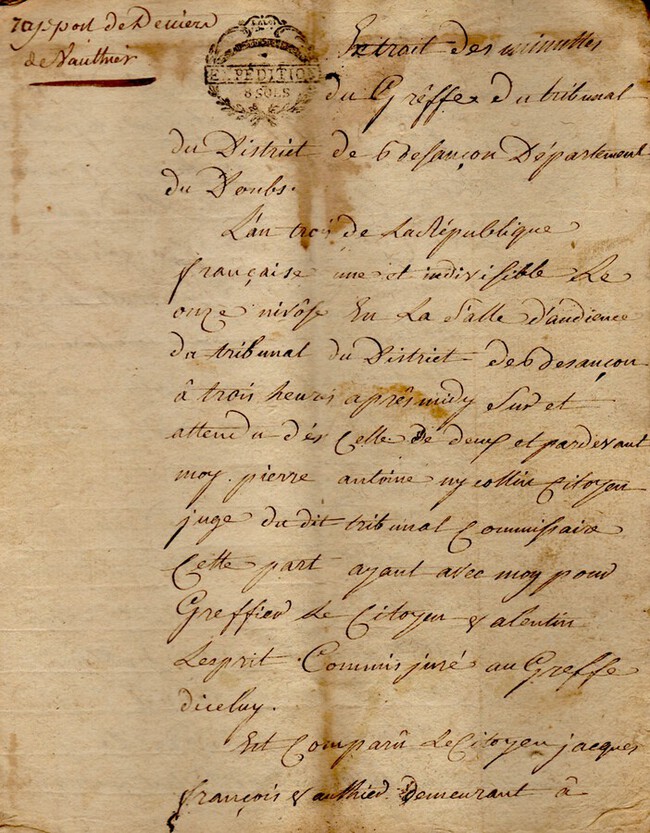 rapport de Deniers
de Vauthier
LA LOI
EXPÉDITION
8 SOLS
Extrait des minuttes
du Gréffe du tribunal
du District de besançon Département
du Doubs.
L'an trois de La République
française une et indivisible Le
onze nivôse En La Salle d'audience
du tribunal du District de besançon
à trois heures après midy Sur et
attendu dés Celle de deux et pardevant
moy pierre antoine nycollin Citoyen
juge du dit tribunal Commissaire
Cette part ayant avec moy pour
Greffier Le Citoyen valentin
Lesprit Commis juré au Greffe
diceluy.
Est Comparû Le Citoyen jacques
françois vauthier demeurant à